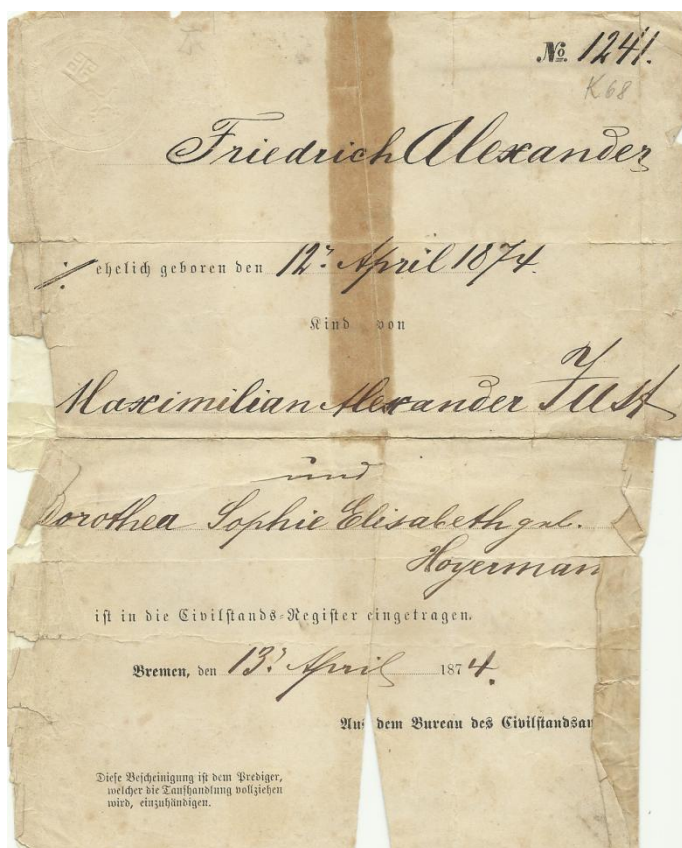 No. 1241.
K68
Friedrich Alexander
ehelich geboren den 12.' April 1874.
Kind von
Maximilian Alexander Just
und
Dorothea Sophie Elisabeth geb.
Hoyerman
ist in die Civilstands-Register eingetragen.
Bremen, den 13.' April 1874.
Aus dem Bureau des Civilstandsam
Diese Bescheinigung ist dem Prediger,
welcher die Taufhandlung vollziehen
wird, einzuhändigen.